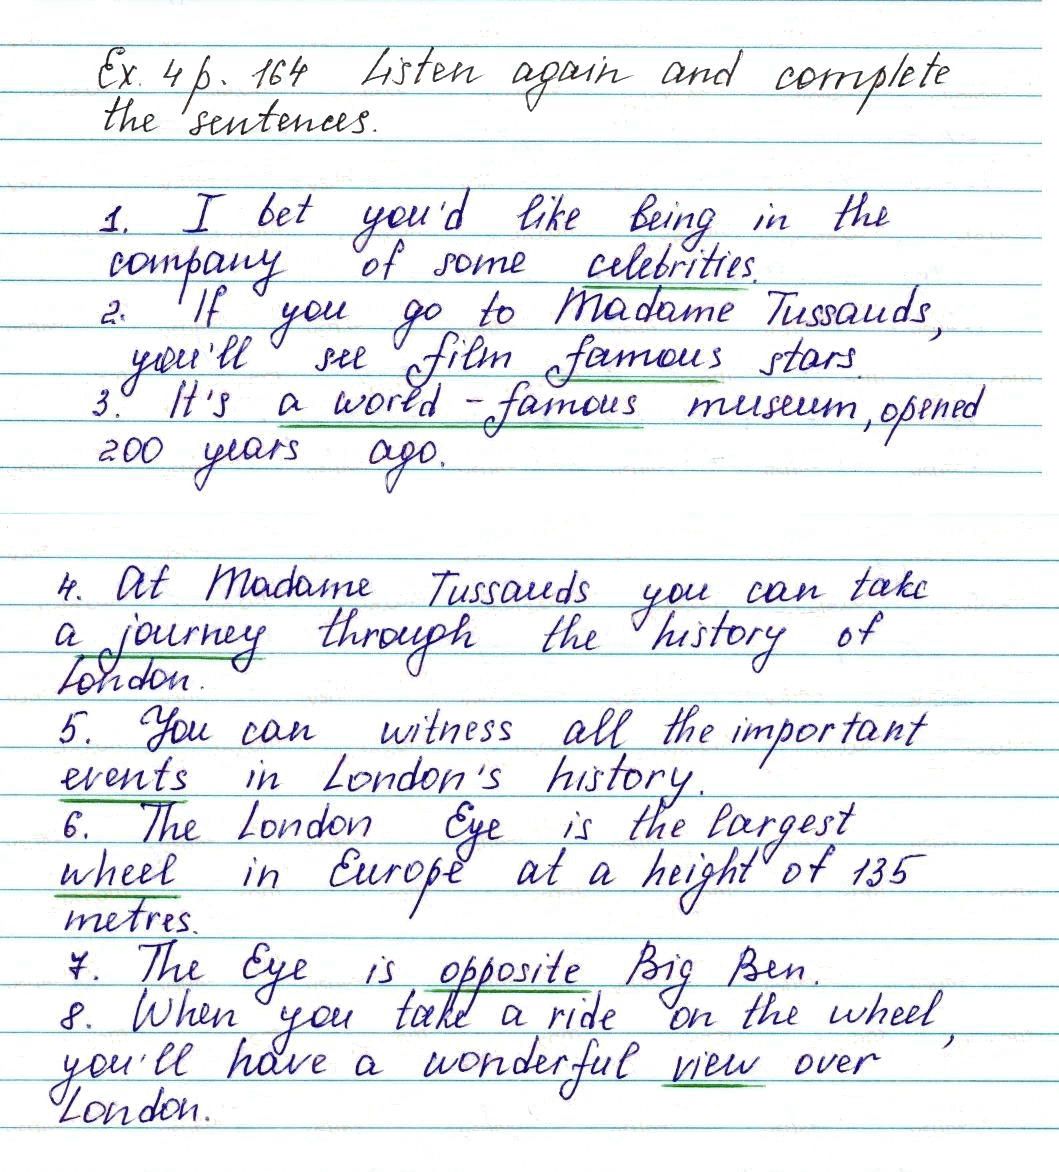 Ex. 4 p. 164 Listen again and complete
the sentences.
1. I bet you'd like being in the
company of some celebrities.
2. If you go to Madame Tussauds,
you'll see film famous stars.
3. It's a world - famous museum, opened
200 years ago.
4. At Madame Tussauds you can take
a journey through the history of
London.
5. You can witness all the important
events in London's history.
6. The London Eye is the largest
wheel in Europe at a height of 135
metres.
7. The Eye is opposite Big Ben.
8. When you take a ride on the wheel,
you'll have a wonderful view over
London.